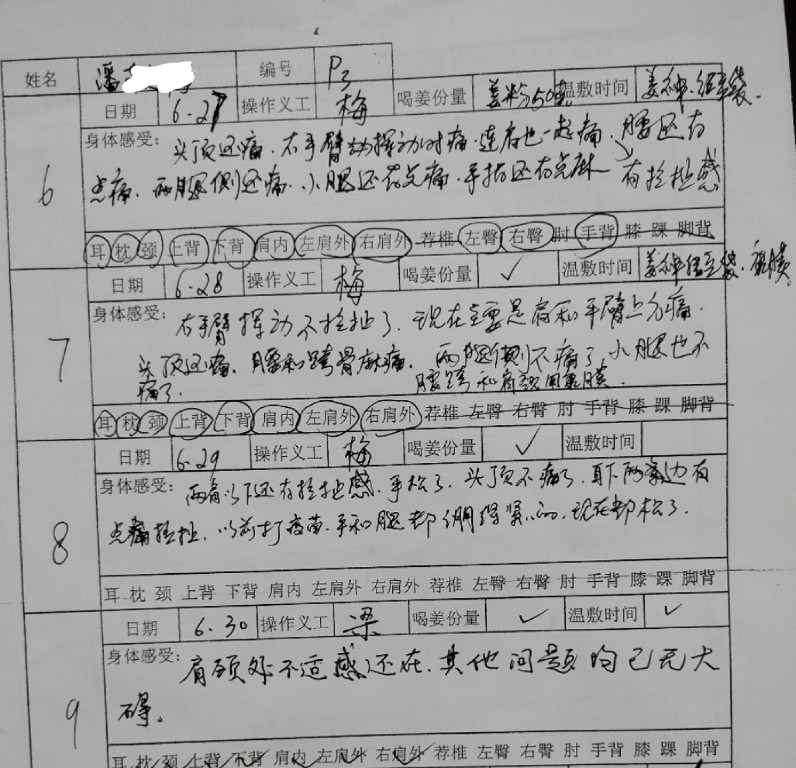 姓名 潘 编号 P3
6 日期 6.27 操作义工 梅 喝姜份量 姜粉50克 温敷时间
身体感受: 头顶还痛.右手臂动挥动时痛.连肩也一起痛.腰还有
点痛.两腿侧还痛.小腿还有点痛.手指还有点麻 有拉扯感
耳 枕 颈 上背 下背 肩内 左肩外 右肩外 荐椎 左臀 右臀 肘 手背 膝 踝 脚背
7 日期 6.28 操作义工 梅 喝姜份量 ✓ 温敷时间
身体感受: 右手臂挥动不拉扯了.现在主要是肩和手臂上方痛.
头顶还痛.腰和跨骨麻痛.两腿侧不痛了,小腿也不
痛了. 腰跨和肩颈用
耳 枕 颈 上背 下背 肩内 左肩外 右肩外 荐椎 左臀 右臀 肘 手背 膝 踝 脚背
8 日期 6.29 操作义工 梅 喝姜份量 ✓ 温敷时间
身体感受: 两肩以下还有拉扯感.手松了.头顶不痛了.耳下两边有
点痛拉扯.以前打疫苗.手和腿都绷得紧的.现在都松了.
耳 枕 颈 上背 下背 肩内 左肩外 右肩外 荐椎 左臀 右臀 肘 手背 膝 踝 脚背
9 日期 6.30 操作义工 梁 喝姜份量 ✓ 温敷时间 ✓
身体感受: 肩颈处不适感还在.其他问题均已无大
碍。
耳 枕 颈 上背 下背 肩内 左肩外 右肩外 荐椎 左臀 右臀 肘 手背 膝 踝 脚背